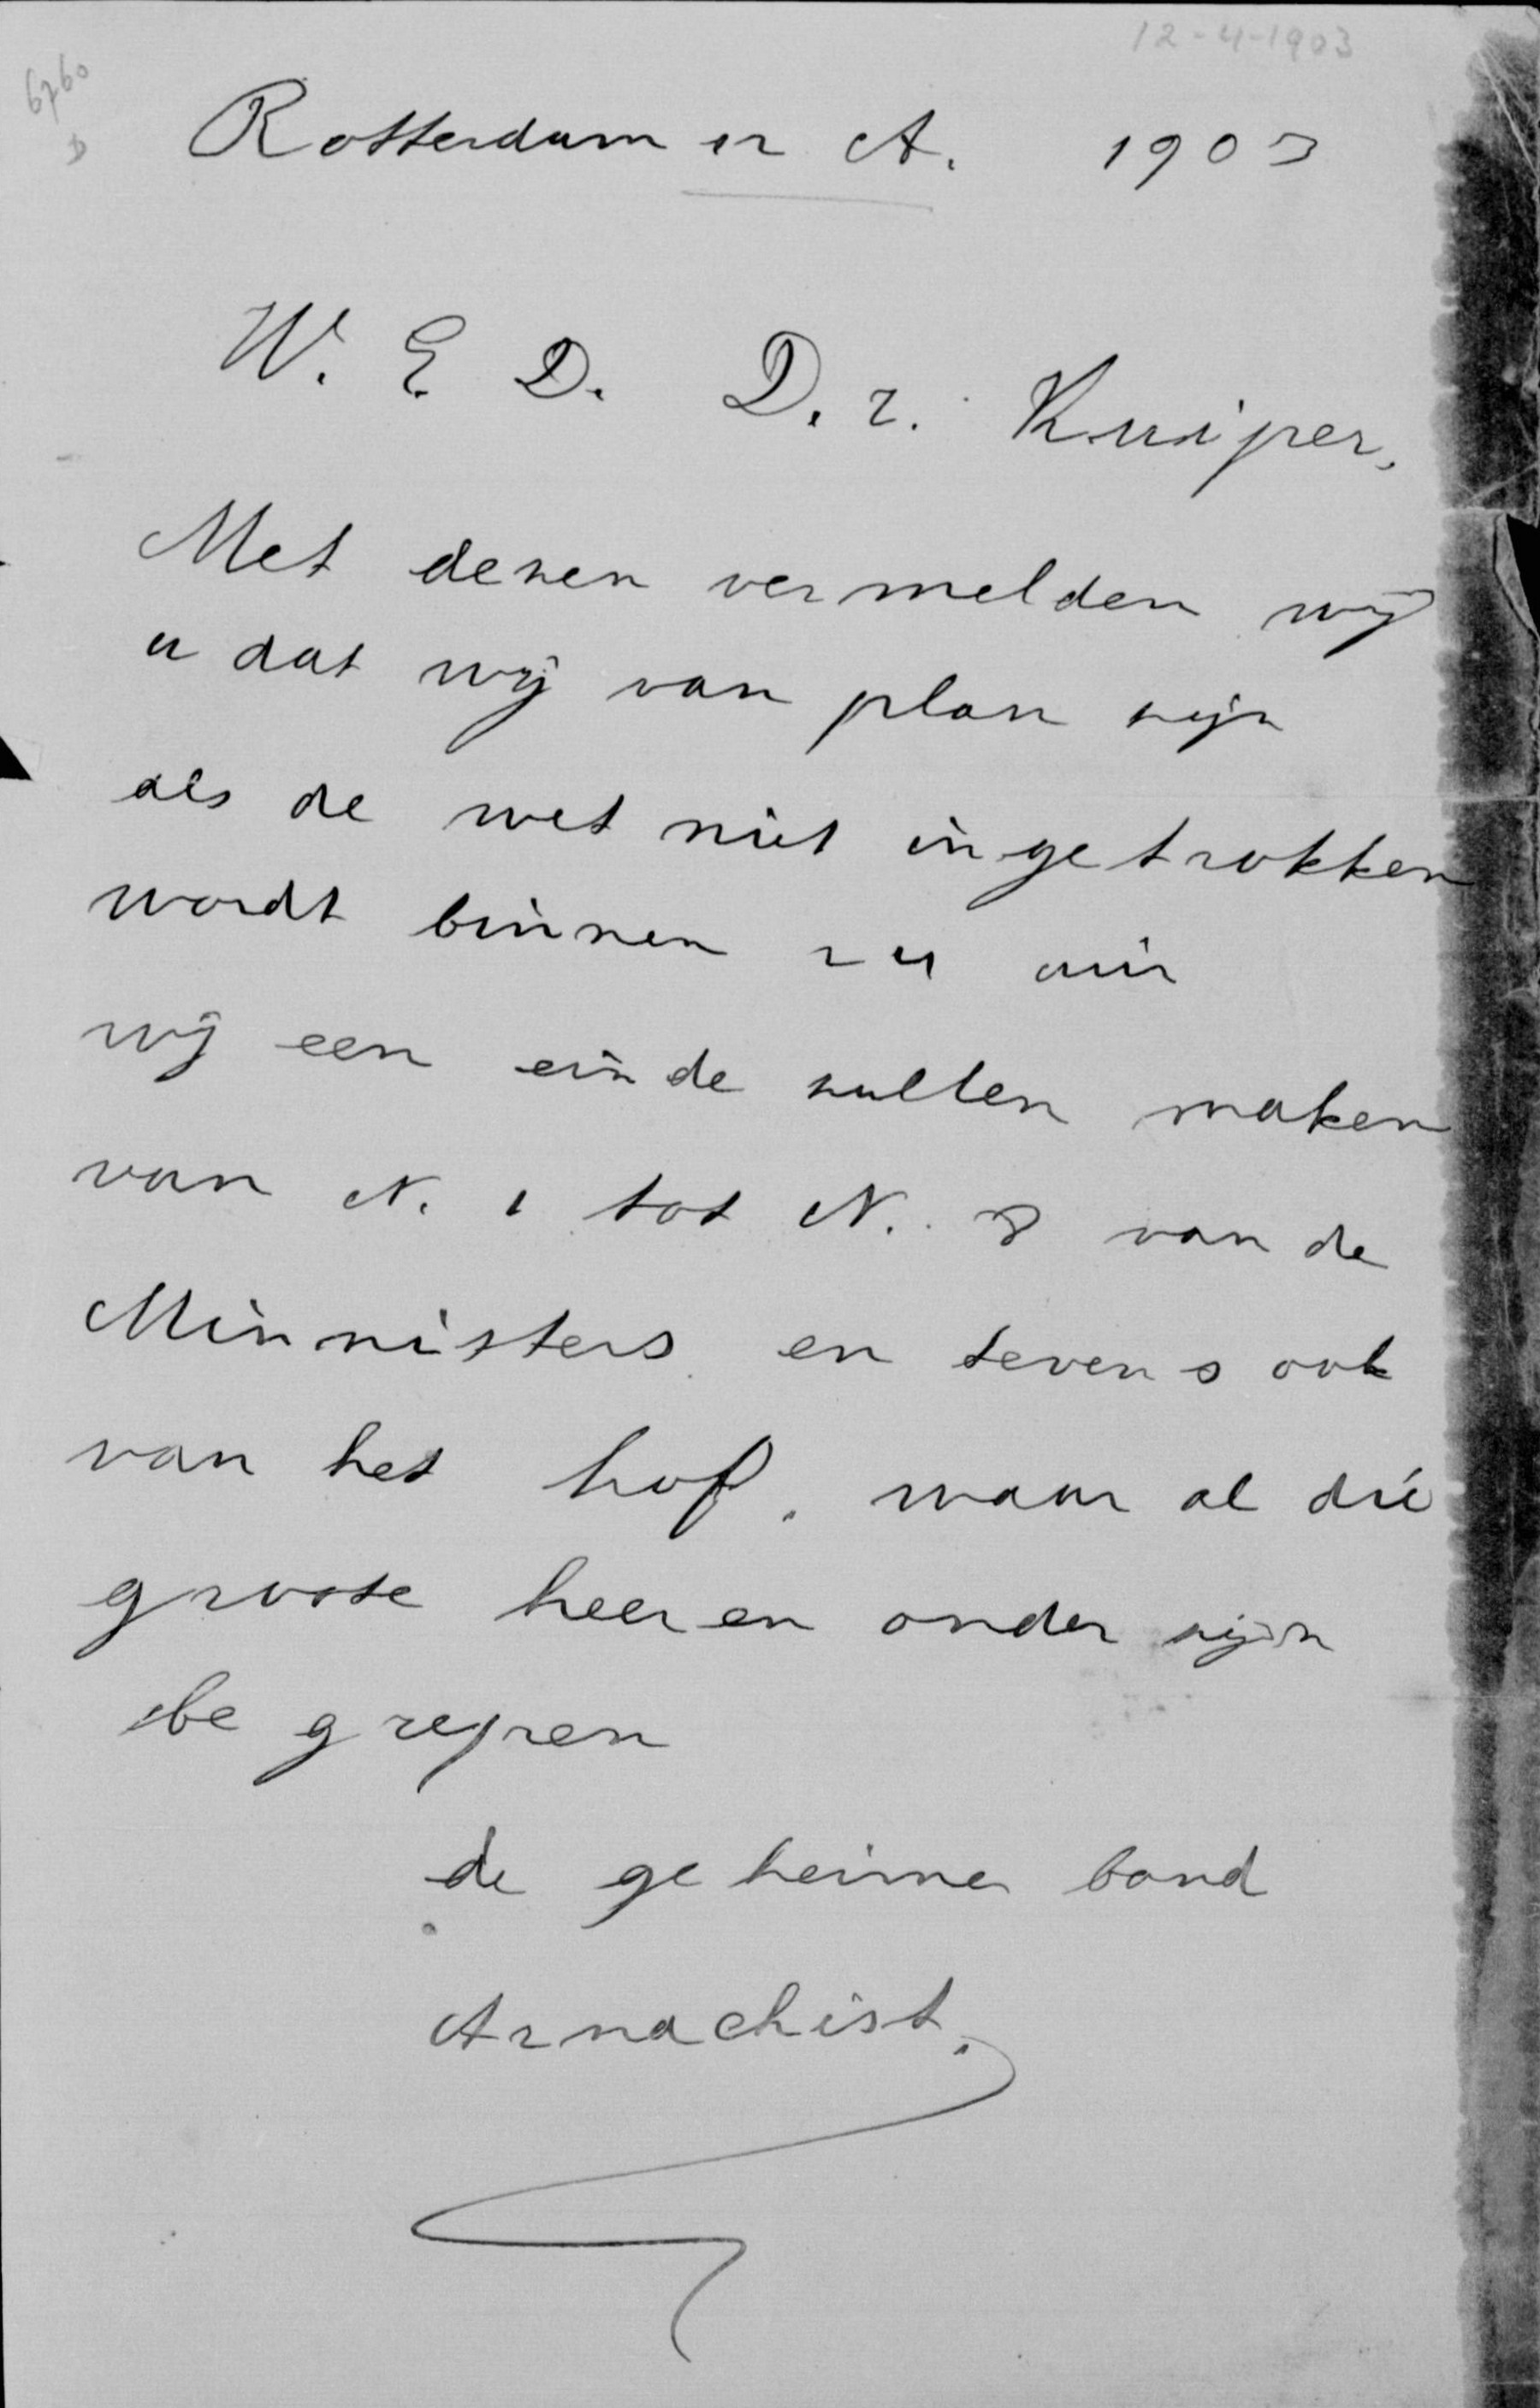 12-4-1903
6760
D
Rotterdam 12 A. 1903
W. E. D. D.r. Kuiper,
Met dezen vermelden wij
u dat wij van plan zijn
als de wet niet ingetrokken
wordt binnen 24 uur
wij een einde zullen maken
van N. 1 tot N. 8 van de
Minnisters en tevens ook
van het hof. waar al die
groote heeren onder zijn
be grepen
de geheimen band
Arnachist.